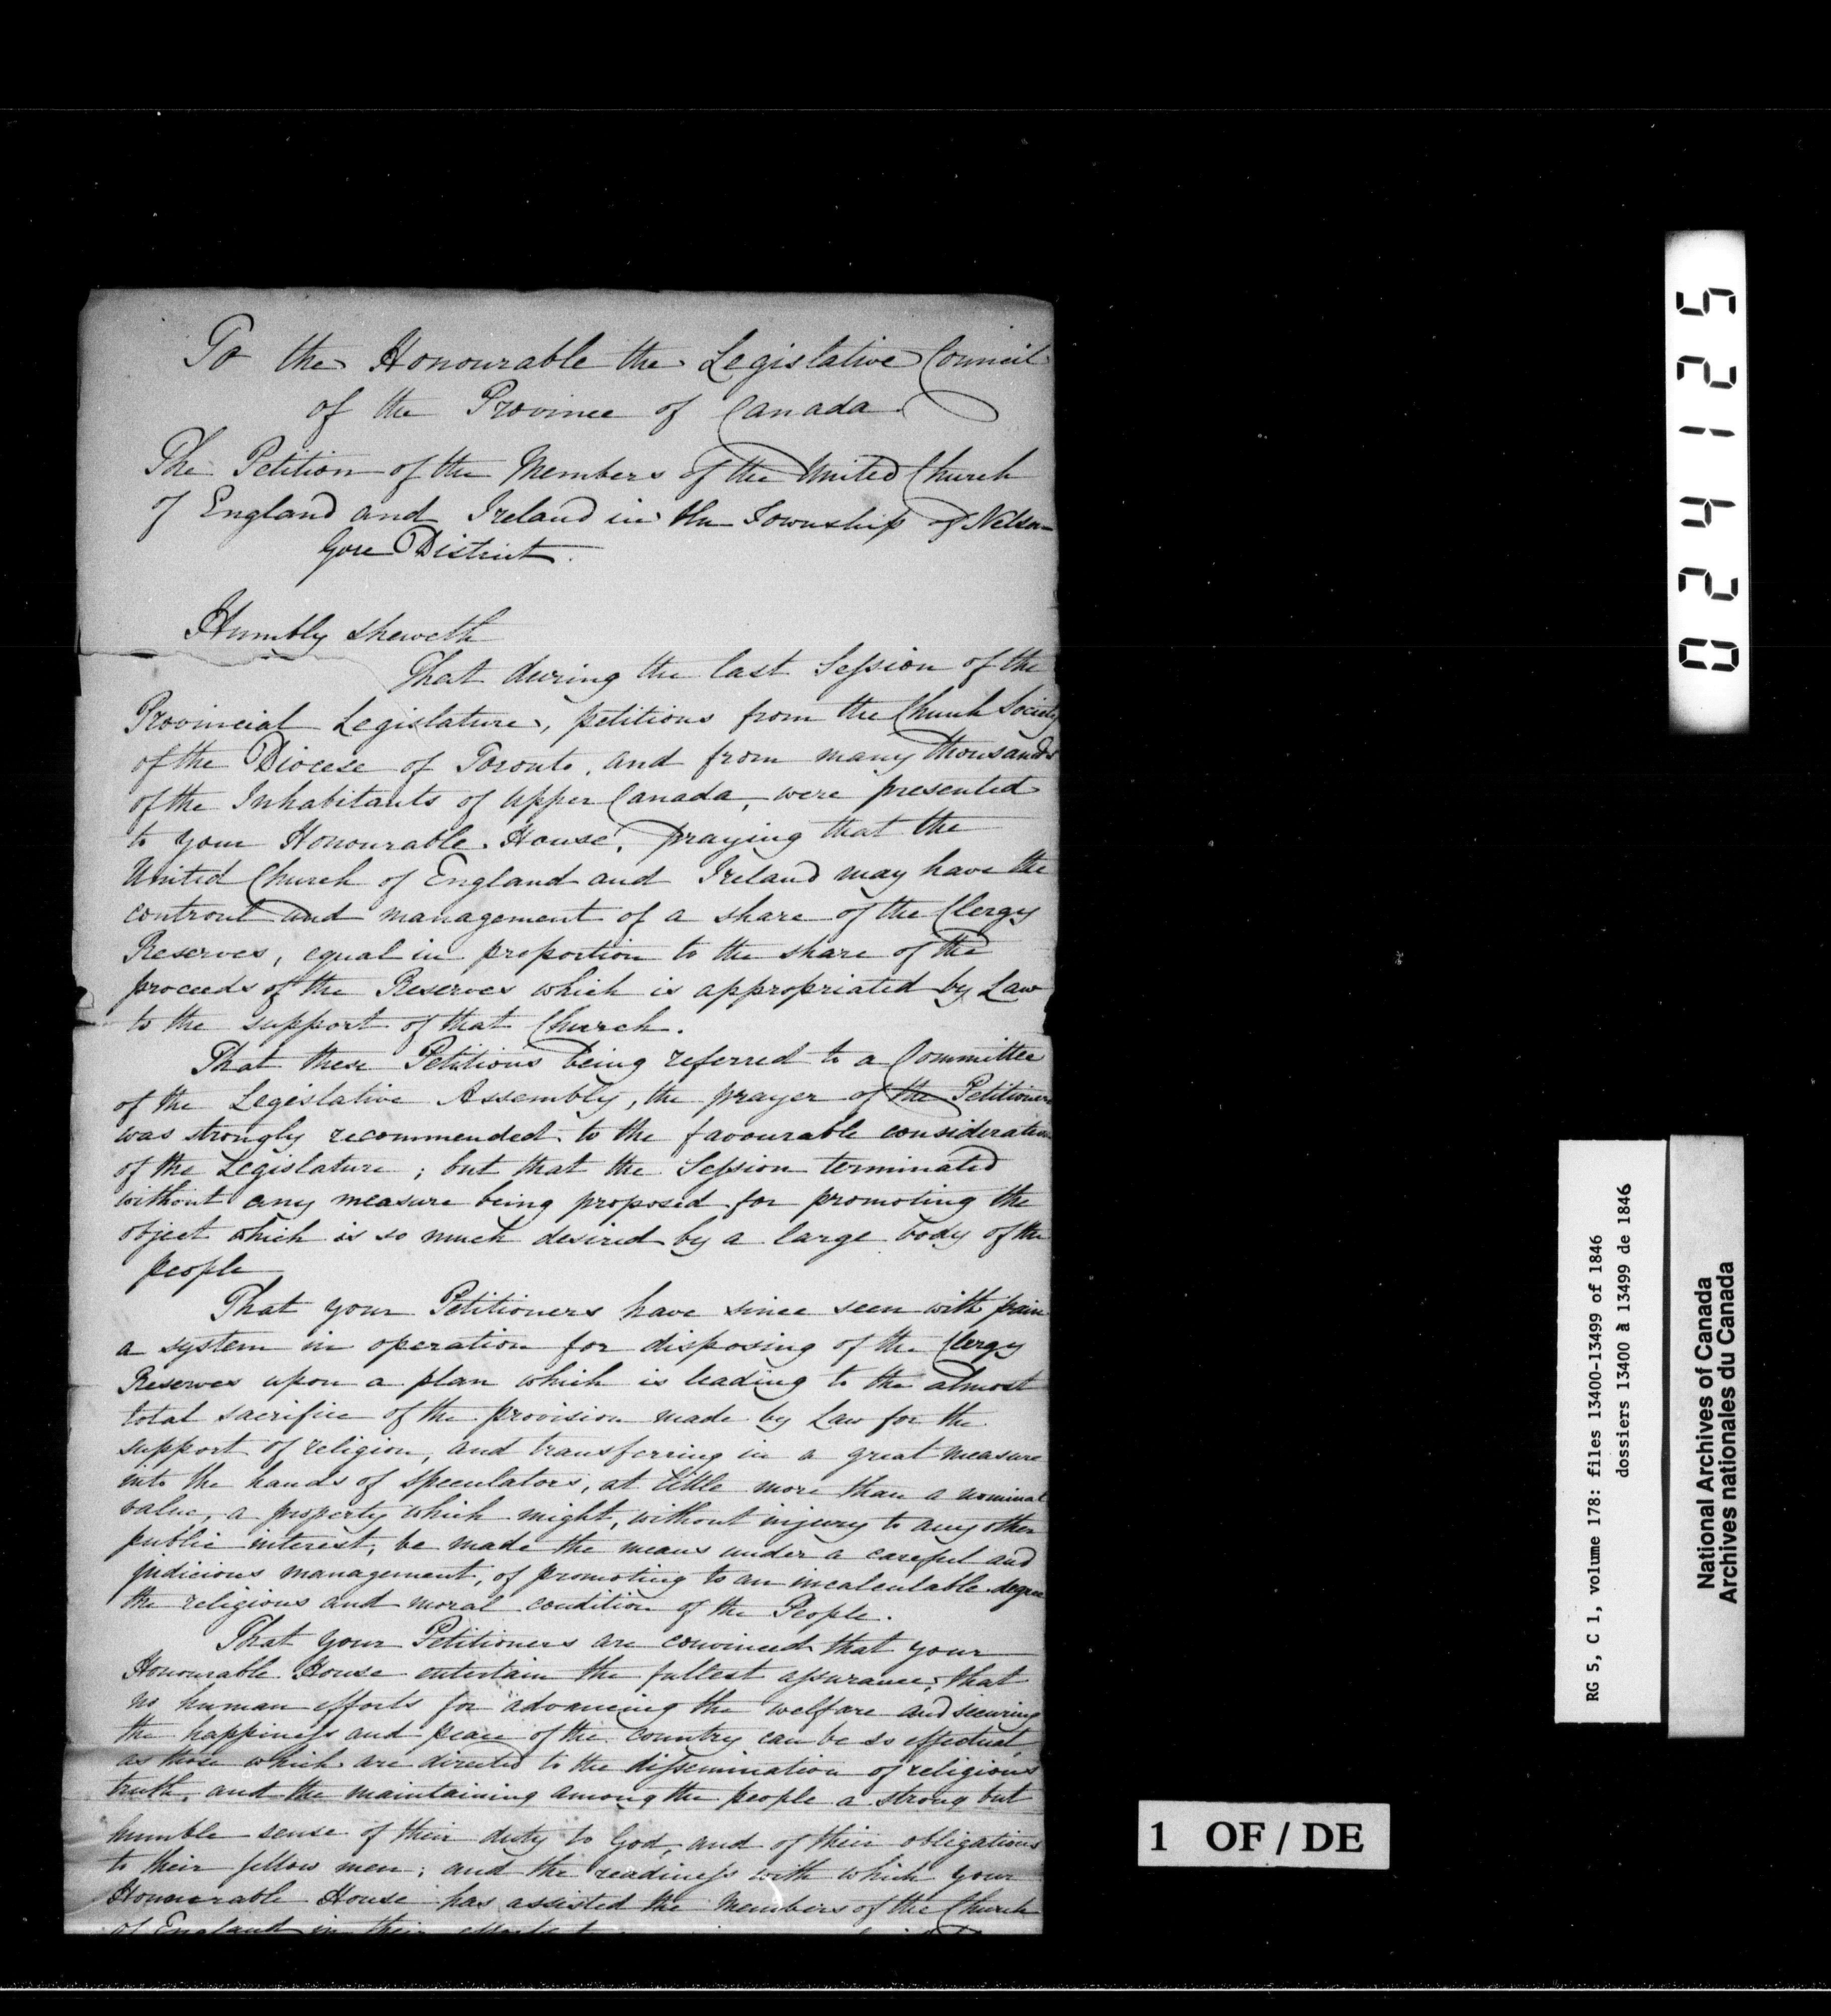 To the Honourable the Legislative Council
of the Province of Canada
The Petition of the Members of the United Church
of England and Ireland in the Township of Nelson
Gore District.
Humbly sheweth
That during the last Session of the
Provincial Legislature, petitions from the Church Society
of the Diocese of Toronto, and from many thousands
of the Inhabitants of Upper Canada, were presented
to your Honourable House, praying that the
United Church of England and Ireland may have the
controul and management of a share of the Clergy
Reserves, equal in proportion to the share of the
proceeds of the Reserves which is appropriated by Law
to the support of that Church.
That these Petitions being referred to a Committee
of the Legislative Assembly, the prayer of the Petitioners
was strongly recommended to the favourable consideration
of the Legislature; but that the Session terminated
without any measure being proposed for promoting the
object which is so much desired by a large body of the
people
That your Petitioners have since seen with pain
a system in operation for disposing of the Clergy
Reserves upon a plan which is leading to the almost
total sacrifice of the provision made by Law for the
support of religion, and transferring in a great measure
into the hands of speculators, at little more than a nominal
value, a property which might, without injury to any other
public interest, be made the means under a careful and
judicious management, of promoting to an incalculable degree
the religious and moral condition of the People.
That your Petitioners are convinced that your
Honourable House entertain the fullest assurance, that
no human efforts for advancing the welfare and securing
the happiness and peace of the country can be so effectual
as those which are directed to the dissemination of religious
truth, and the maintaining among the people a strong but
humble sense of their duty to God, and of their obligations
to their fellow men; and the readiness with which your
Honourable House has assisted the Members of the Church
of England in their
024125
RG 5, C 1, volume 178: files 13400-13499 of 1846
dossiers 13400 à 13499 de 1846
National Archives of Canada
Archives nationales du Canada
1 OF / DE